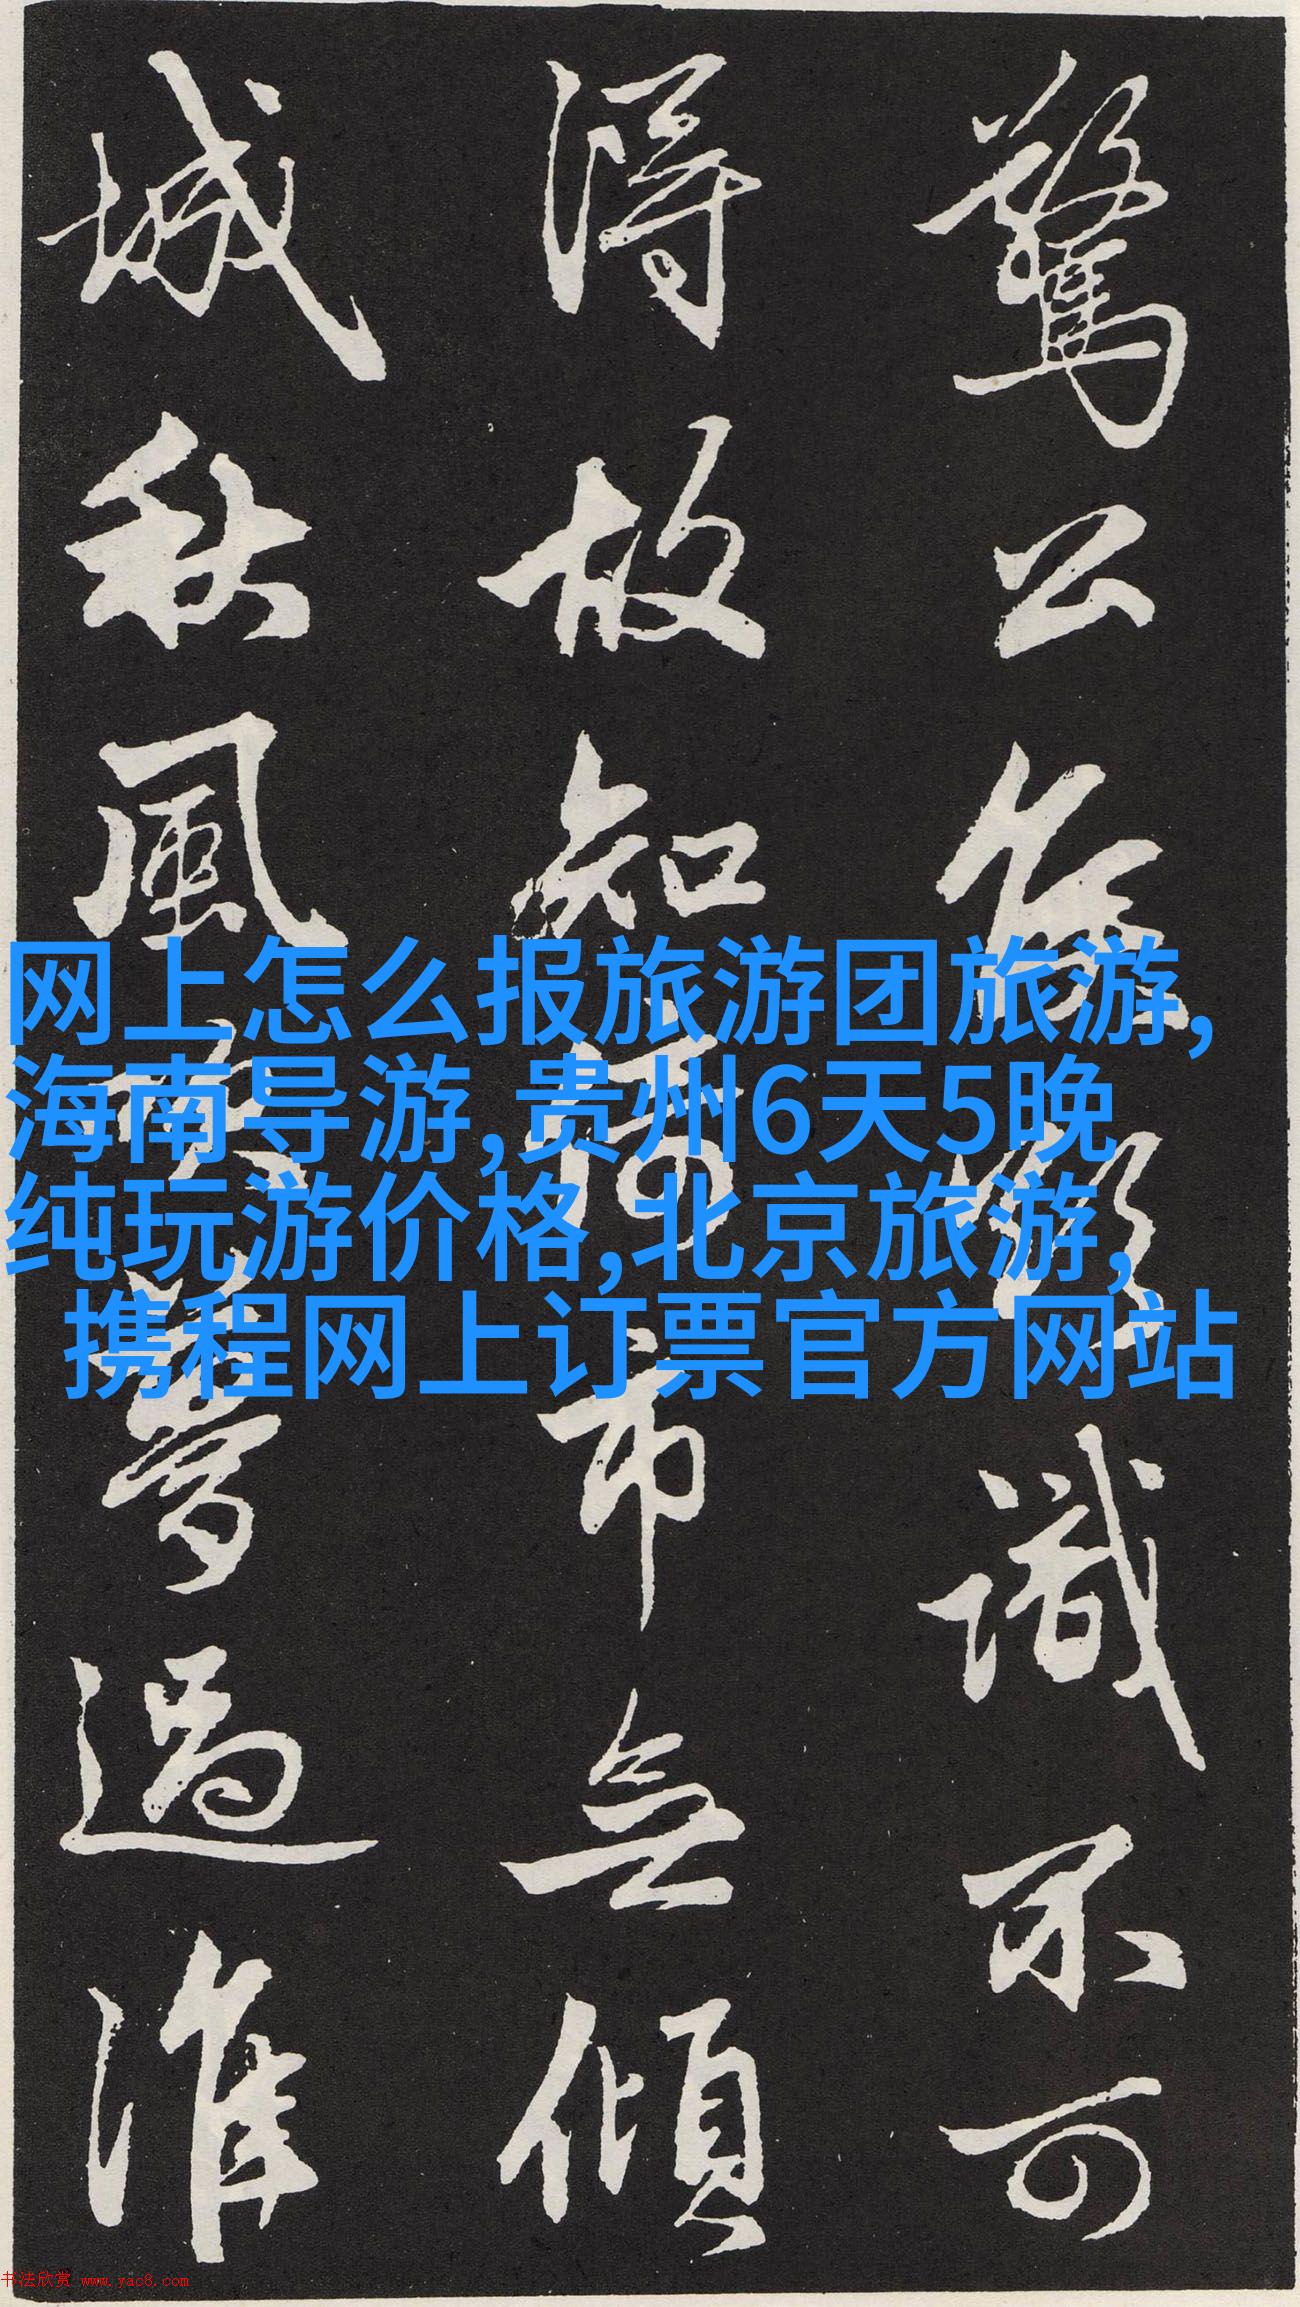 驚公識不可
得故知何市無傾
城秋風夢過淮
网上怎么报旅游团旅游,
海南导游,贵州6天5晚
纯玩游价格,北京旅游,
携程网上订票官方网站
书法欣赏 www.yac8.com